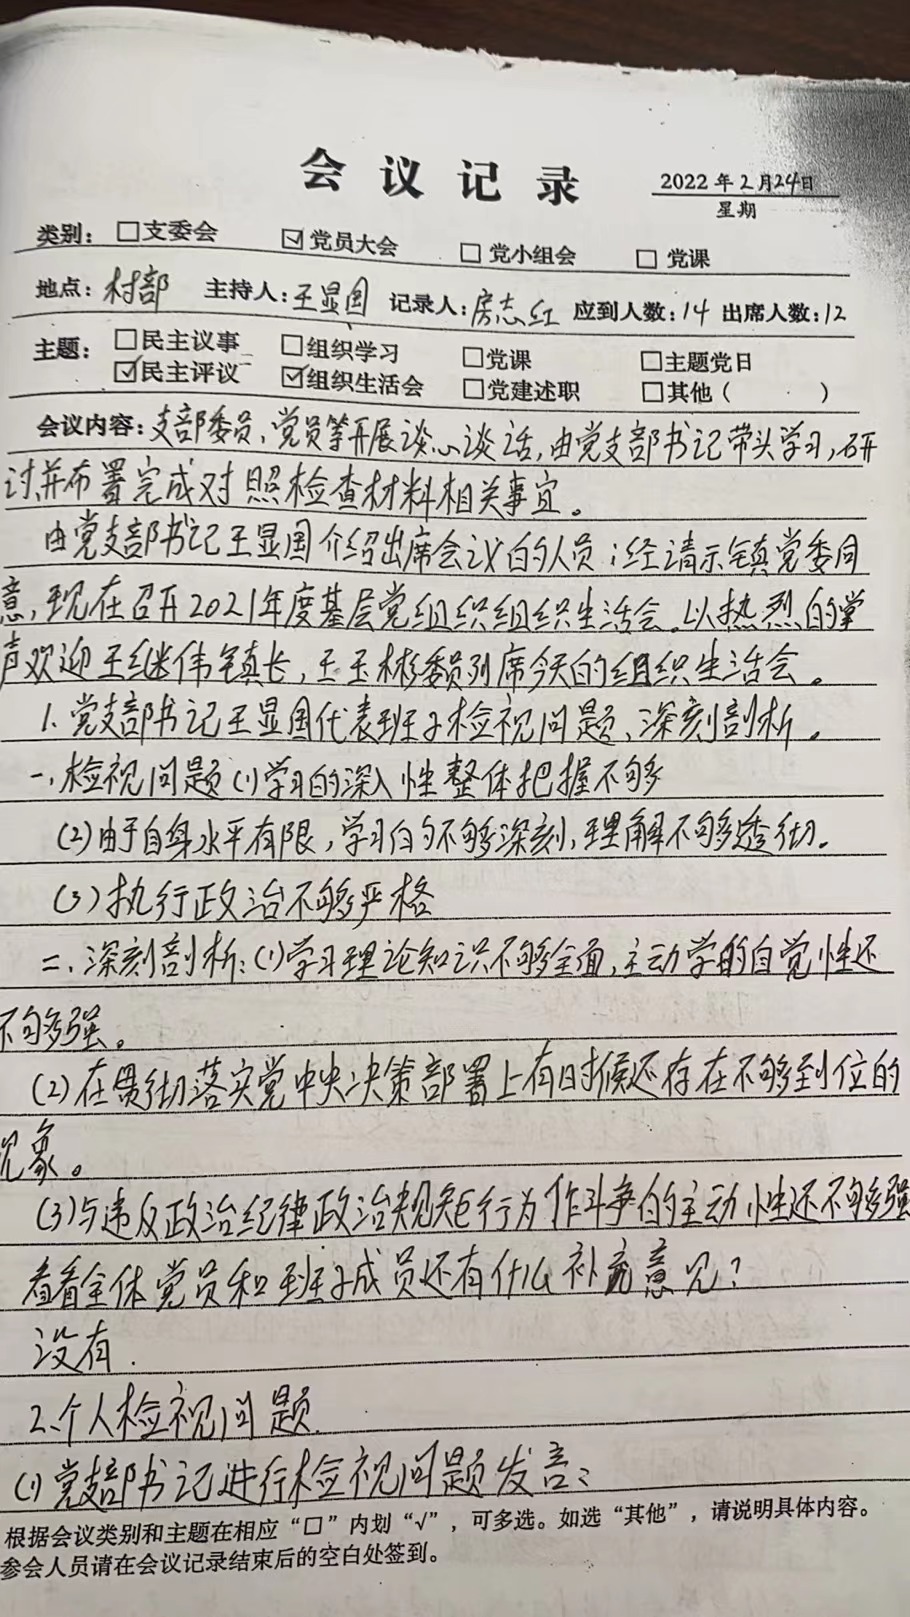 会议记录
2022年2月24日
星期
类别：☐支委会 ☑党员大会 ☐党小组会 ☐党课
地点：村部 主持人：王显国 记录人：房志红 应到人数：14 出席人数：12
主题：☐民主议事 ☐组织学习 ☐党课 ☐主题党日
☑民主评议 ☑组织生活会 ☐党建述职 ☐其他（ ）
会议内容：支部委员、党员等开展谈心谈话，由党支部书记带头学习，研
讨并布置完成对照检查材料相关事宜。
由党支部书记王显国介绍出席会议的人员；经请示镇党委同
意，现在召开2021年度基层党组织组织生活会。以热烈的掌
声欢迎王继伟镇长，王玉彬委员列席今天的组织生活会。
1.党支部书记王显国代表班子检视问题、深刻剖析。
一、检视问题(1)学习的深入性整体把握不够
(2)由于自身水平有限，学习的不够深刻，理解不够透彻。
(3)执行政治不够严格
二、深刻剖析：(1)学习理论知识不够全面，主动学的自觉性还
不够强。
(2)在贯彻落实党中央决策部署上有时候还存在不够到位的
现象。
(3)与违反政治纪律政治规矩行为作斗争的主动性还不够强
看看全体党员和班子成员还有什么补充意见？
没有.
2.个人检视问题.
(1)党支部书记进行检视问题发言：
根据会议类别和主题在相应“☐”内划“√”，可多选。如选“其他”，请说明具体内容。
参会人员请在会议记录结束后的空白处签到。